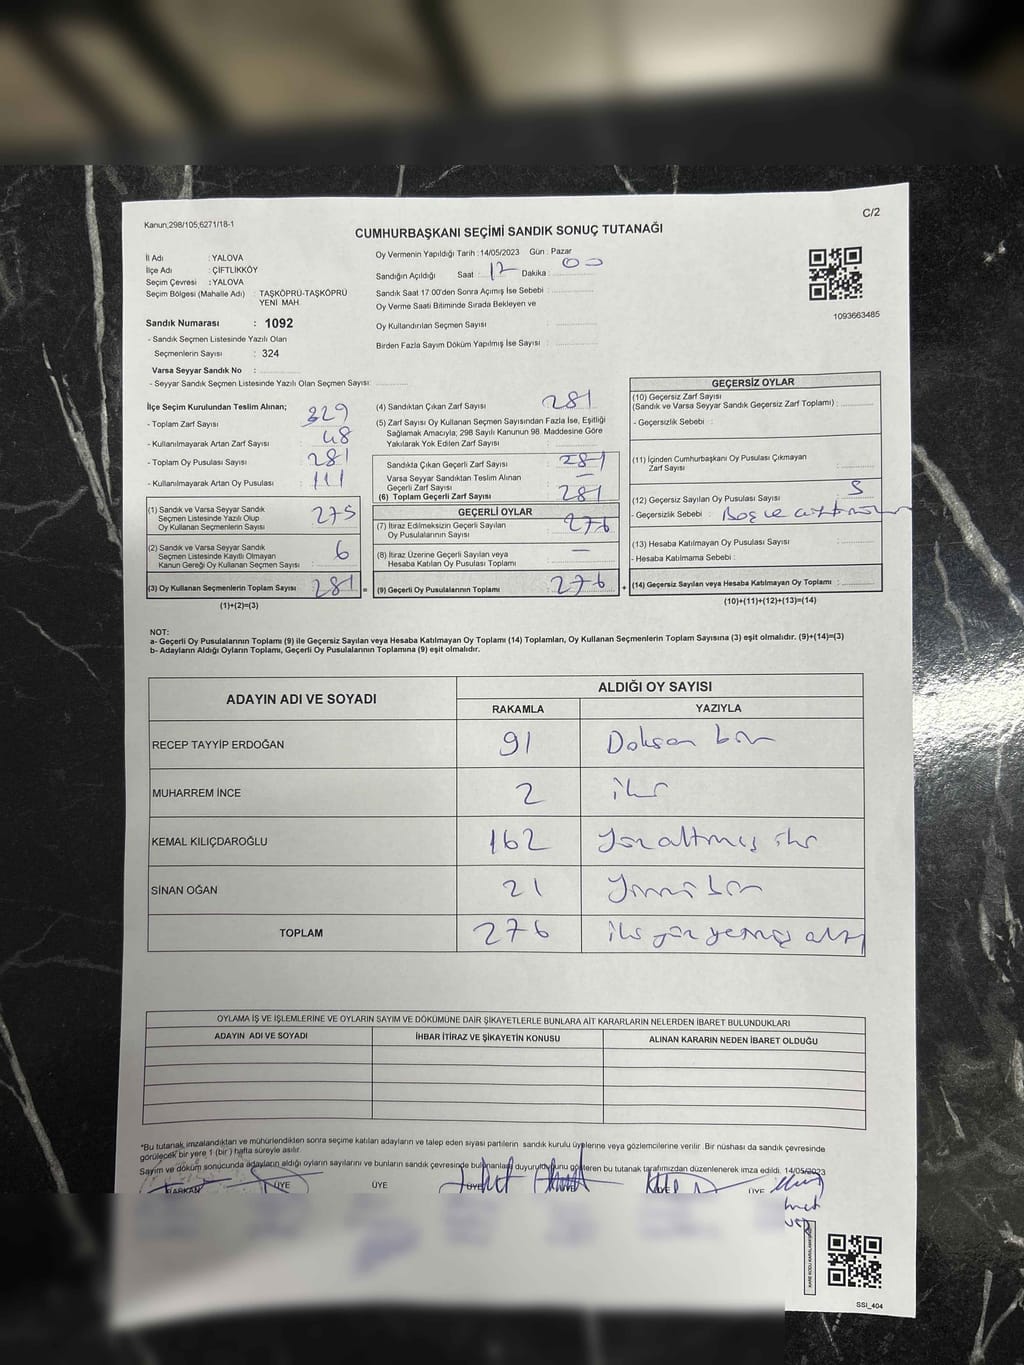 Kanun;298/105;6271/18-1
C/2
CUMHURBAŞKANI SEÇİMİ SANDIK SONUÇ TUTANAĞI
İl Adı : YALOVA
İlçe Adı : ÇİFTLİKKÖY
Seçim Çevresi : YALOVA
Seçim Bölgesi (Mahalle Adı) : TAŞKÖPRÜ-TAŞKÖPRÜ
YENİ MAH.
Sandık Numarası : 1092
- Sandık Seçmen Listesinde Yazılı Olan
Seçmenlerin Sayısı : 324
Varsa Seyyar Sandık No :
- Seyyar Sandık Seçmen Listesinde Yazılı Olan Seçmen Sayısı:
Oy Vermenin Yapıldığı Tarih : 14/05/2023 Gün : Pazar
Sandığın Açıldığı Saat : 17 Dakika : 00
Sandık Saat 17.00'den Sonra Açılmış İse Sebebi :
Oy Verme Saati Bitiminde Sırada Bekleyen ve
Oy Kullandırılan Seçmen Sayısı :
Birden Fazla Sayım Döküm Yapılmış İse Sayısı :
1093663485
İlçe Seçim Kurulundan Teslim Alınan;
- Toplam Zarf Sayısı : 329
- Kullanılmayarak Artan Zarf Sayısı : 48
- Toplam Oy Pusulası Sayısı : 281
- Kullanılmayarak Artan Oy Pusulası : 111
(1) Sandık ve Varsa Seyyar Sandık
Seçmen Listesinde Yazılı Olup
Oy Kullanan Seçmenlerin Sayısı : 275
(2) Sandık ve Varsa Seyyar Sandık
Seçmen Listesinde Kayıtlı Olmayan
Kanun Gereği Oy Kullanan Seçmen Sayısı : 6
(3) Oy Kullanan Seçmenlerin Toplam Sayısı : 281
(1)+(2)=(3)
(4) Sandıktan Çıkan Zarf Sayısı : 281
(5) Zarf Sayısı Oy Kullanan Seçmen Sayısından Fazla İse, Eşitliği
Sağlamak Amacıyla; 298 Sayılı Kanunun 98. Maddesine Göre
Yakılarak Yok Edilen Zarf Sayısı :
Sandıkta Çıkan Geçerli Zarf Sayısı : 281
Varsa Seyyar Sandıktan Teslim Alınan
Geçerli Zarf Sayısı : —
(6) Toplam Geçerli Zarf Sayısı : 281
GEÇERLİ OYLAR
(7) İtiraz Edilmeksizin Geçerli Sayılan
Oy Pusulalarının Sayısı : 276
(8) İtiraz Üzerine Geçerli Sayılan veya
Hesaba Katılan Oy Pusulası Toplamı : —
= (9) Geçerli Oy Pusulalarının Toplamı : 276 +
GEÇERSİZ OYLAR
(10) Geçersiz Zarf Sayısı
(Sandık ve Varsa Seyyar Sandık Geçersiz Zarf Toplamı) :
- Geçersizlik Sebebi :
(11) İçinden Cumhurbaşkanı Oy Pusulası Çıkmayan
Zarf Sayısı :
(12) Geçersiz Sayılan Oy Pusulası Sayısı : 5
- Geçersizlik Sebebi :
(13) Hesaba Katılmayan Oy Pusulası Sayısı :
- Hesaba Katılmama Sebebi :
(14) Geçersiz Sayılan veya Hesaba Katılmayan Oy Toplamı :
(10)+(11)+(12)+(13)=(14)
NOT:
a- Geçerli Oy Pusulalarının Toplamı (9) ile Geçersiz Sayılan veya Hesaba Katılmayan Oy Toplamı (14) Toplamları, Oy Kullanan Seçmenlerin Toplam Sayısına (3) eşit olmalıdır. (9)+(14)=(3)
b- Adayların Aldığı Oyların Toplamı, Geçerli Oy Pusulalarının Toplamına (9) eşit olmalıdır.
ADAYIN ADI VE SOYADI
ALDIĞI OY SAYISI
RAKAMLA YAZIYLA
RECEP TAYYİP ERDOĞAN 91 Doksan bir
MUHARREM İNCE 2 iki
KEMAL KILIÇDAROĞLU 162 Yüz altmış iki
SİNAN OĞAN 21 Yirmi bir
TOPLAM 276 iki yüz yetmiş altı
OYLAMA İŞ VE İŞLEMLERİNE VE OYLARIN SAYIM VE DÖKÜMÜNE DAİR ŞİKAYETLERLE BUNLARA AİT KARARLARIN NELERDEN İBARET BULUNDUKLARI
ADAYIN ADI VE SOYADI İHBAR İTİRAZ VE ŞİKAYETİN KONUSU ALINAN KARARIN NEDEN İBARET OLDUĞU
*Bu tutanak imzalandıktan ve mühürlendikten sonra seçime katılan adayların ve talep eden siyasi partilerin sandık kurulu üyelerine veya gözlemcilerine verilir. Bir nüshası da sandık çevresinde
görülecek bir yere 1 (bir) hafta süreyle asılır.
Sayım ve döküm sonucunda adayların aldığı oyların sayılarını ve bunların sandık çevresinde bulunanlara duyurulduğunu gösteren bu tutanak tarafımızdan düzenlenerek imza edildi. 14/05/2023
BAŞKAN ÜYE ÜYE ÜYE ÜYE
SSI_404